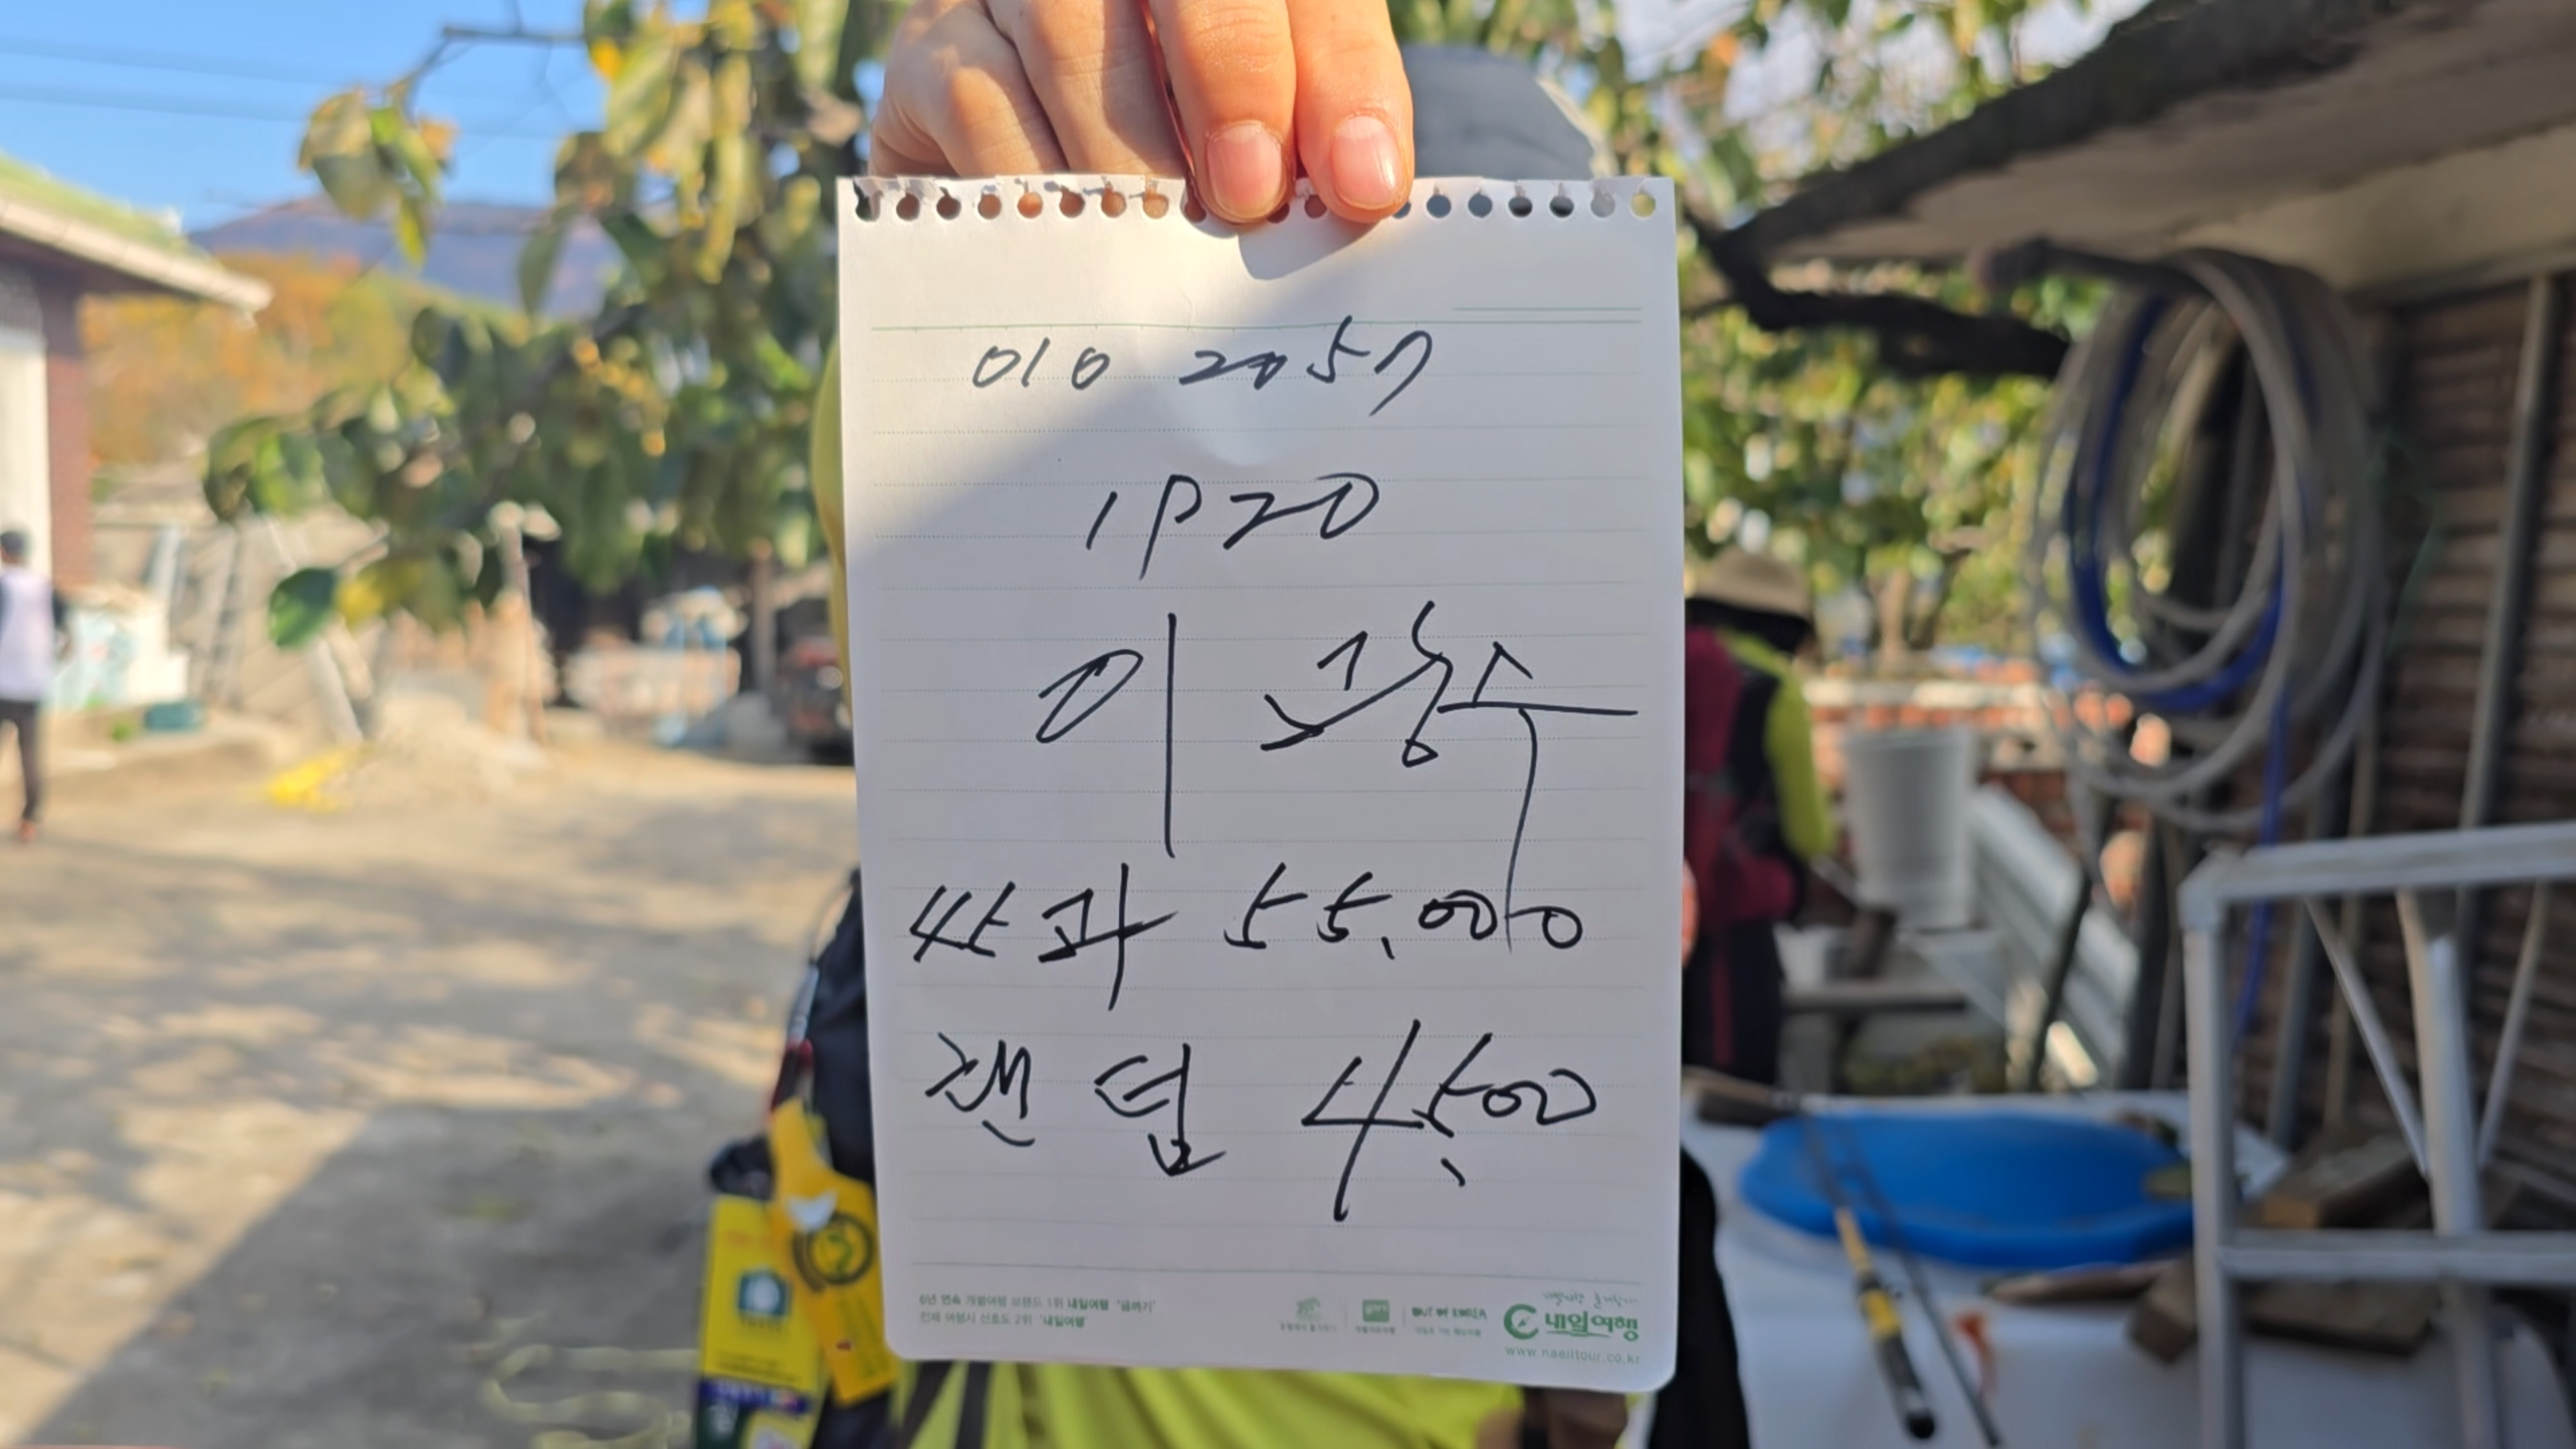 010 2057
1920
이광수
싸과 55,000
캔털 4,500
6년 연속 개별여행 브랜드 1위 내일여행 '금까기'
전체 여행사 선호도 2위 '내일여행'
OUT OF KOREA
내일여행
www.naeiltour.co.kr